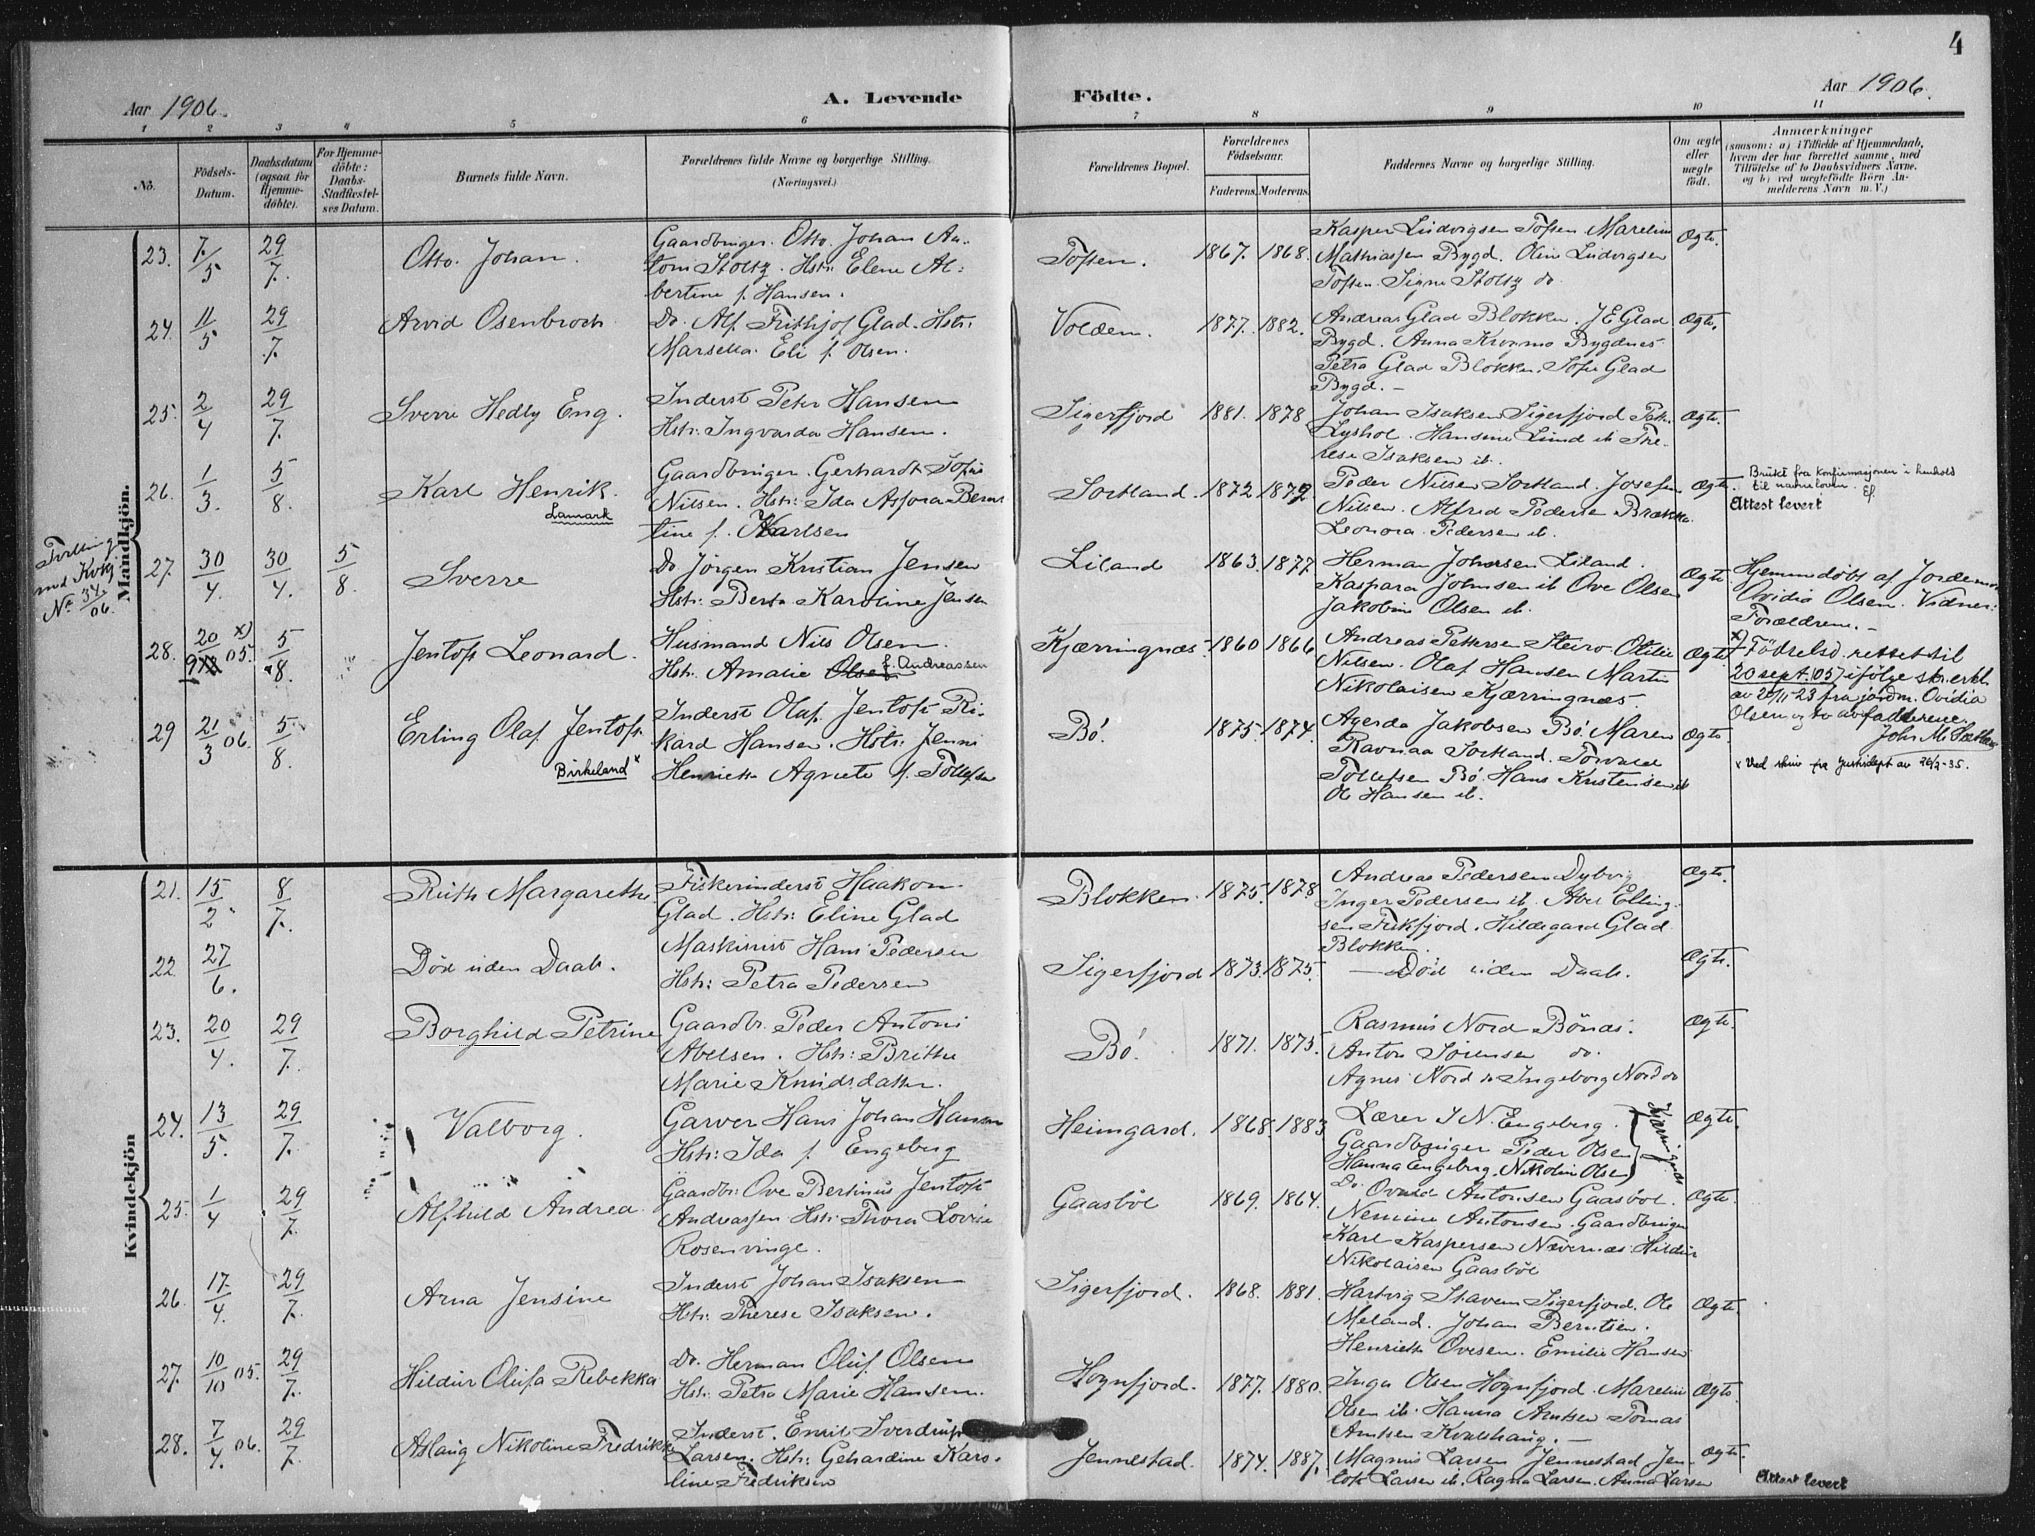 4
Aar 1906.
A. Levende
Födte.
Aar 1906.
1 2 3 4 5 6 7 8 9 10 11
No.
Födsels-
Datum.
Daabsdatum
(ogsaa for
Hjemme-
döbte).
For Hjemme-
döbte:
Daabs-
Stadfæstel-
ses Datum.
Barnets fulde Navn.
Forældrenes fulde Navne og borgerlige Stilling.
(Næringsvei.)
Forældrenes Bopæl.
Forældrenes
Födselsaar.
Faderens. Moderens.
Faddernes Navne og borgerlige Stilling.
Om ægte
eller
uægte
födt.
Anmærkninger
(saasom: a) i Tilfælde af Hjemmedaab,
hvem der har forrettet samme, med
Tilföielse af to Daabsvidners Navne.
og b) ved uægtefödte Börn An-
melderens Navn m. V.)
Mandkjön.
23. 7/5 29/7.
Otto Johan.
Gaardbruger Otto Johan An-
toni Stoltz. Hstr. Elene Al-
bertine f. Hansen.
Tofsen. 1867. 1868.
Kasper Ludvigsen Tofsen Marelius
Mathiassen Bygd. Oline Ludvigsen
Tofsen. Signe Stoltz do.
Ægte.
24. 11/5 29/7.
Arvid Osenbroch
Do. Alf Frithjof Glad. Hstr.
Marsella Eli f. Olsen.
Volden. 1877. 1882.
Andreas Glad Blokken. J E Glad
Bygd. Anna Bygdnes
Petra Glad Blokken. Sofie Glad
Bygd. —
Ægte.
25. 2/4 29/7.
Sverre Hedly Eng.
Inderst Peter Hansen
Hstr. Ingvarda Hansen.
Sigerfjord 1881. 1878.
Johan Isaksen Sigerfjord Petr.
Lyshol. Hansine Lund ib. The-
rese Isaksen ib.
Ægte.
26. 1/3. 5/8.
Karl Henrik.
Lamark
Gaardbruger. Gerhardt Tofius
Nilsen. Hstr. Ida Asfora Bernt
tine f. Karlsen
Sortland. 1872. 1872
Peder Nilsen Sortland. Josefine
Nilsen. Alfred Pedersen Brække.
Leonora Pedersen ib.
Ægte.
Brukt fra konfirmasjonen i henhold
til navneloven. Ef.
Attest levert
Tvilling
med Kvkj
No 34/06.
27. 30/4. 30/4. 5/8.
Sverre
Do Jörgen Kristian Jensen
Hstr. Berta Karoline Jensen
Liland 1863. 1877.
Herman Johnsen Liland.
Kaspara Johnsen ib Ove Olsen
Jakobine Olsen ib.
Ægte
Hjemmedöbt af Jordemor
Ovidia Olsen. Vidner:
Forældrene. —
28. 20/9 x) 05. 5/8.
Jentoft Leonard.
Husmand Nils Olsen.
Hstr. Amalie Olsen f. Andreassen
Kjærringnæs. 1860 1866
Andreas Pettersen Steiro Otilie
Nilsen. Olaf Hansen Martin
Nikolaisen Kjærringnæs.
Ægte
x) Födselsd. rettet til
20 sept. 05 ifölge skr. erkl.
av 20/11-23 fra jordm. Ovidia
Olsen og to av fadderne.
John M. Sætter
29 21/3 06. 5/8.
Erling Olaf Jentoft.
Birkeland x
Inderst Olaf Jentoft Ri-
kard Hansen. Hstr. Jenni
Henriette Agnete f. Tollefsen
Bö. 1875. 1874.
Agerda Jakobsen Bö. Maren
Ravnaa Sortland. Torvald
Tollefsen Bö. Hans Kristensen ib
Ole Hansen ib.
Ægte.
x Ved skriv fra Justisdept av 26/2-35.
Kvindekjön
21. 15/2. 8/7.
Ruth Margarethe
Fiskerinderst Haakon
Glad. Hstr. Eline Glad
Blokken. 1875. 1878
Andreas Pedersen Dybvig
Inger Pedersen ib. Abel Elling-
sen Fiskfjord. Hildegard Glad
Blokken.
Ægte.
22 27/6.
Död uden Daab.
Maskinist Hans Pedersen
Hstr: Petra Pedersen
Sigerfjord 1873. 1875.
— Död uden Daab.
Ægte.
23. 20/4. 29/7.
Borghild Petrine
Gaardbr. Peder Antoni
Abelsen. Hstr: Britha
Marie Knudsdatter.
Bö. 1871. 1875.
Rasmus Nord Bönæs.
Anton Sörensen do.
Agnes Nord do Ingeborg Nord do
Ægte.
24. 13/5. 29/7.
Valborg.
Garver Hans Johan Hansen
Hstr: Ida f. Engeberg
Heimgard. 1868. 1883.
Lærer I N. Engeberg.
Gaardbruger Peder Olsen
Hanna Engeberg. Nikolin Olsen
Kjærringnæs
Ægte.
25. 1/4 29/7.
Alfhild Andrea
Gaardbr. Ove Bertinus Jentoft
Andreassen Hstr. Thora Lovise
Rosenvinge.
Gaasböl 1869. 1864.
Do. Antonsen Gaasböl.
Nemine Antonsen. Gaardbruger
Karl Kaspersen Nævernæs. Hildur
Nikolaisen Gaasböl
Ægte.
26. 17/4. 29/7.
Arna Jensine
Inderst Johan Isaksen
Hstr. Therese Isaksen.
Sigerfjord. 1868. 1881.
Hartvig Stavem Sigerfjord. Ole
Meland. Johan Berntsen.
Henriette Ovesen. Emilie Hansen
Ægte.
27. 10/10 05. 29/7.
Hildur Olufa Rebekka
Do. Herman Oluf Olsen
Hstr. Petra Marie Hansen.
Hognfjord. 1877. 1880.
Inga Olsen Hognfjord. Marelius
Olsen ib. Hanna Arntsen Tomas
Arntsen Kvalshaug. —
Ægte
28. 7/4. 06. 29/7.
Aslaug Nikoline Fredrikke
Inderst. Emil Sverdrup
Larsen. Hstr: Gehardine Karo-
line Fredriksen
Jennestad. 1874. 1887.
Magnus Larsen Jennestad. Jen-
toft Larsen ib. Ragna Larsen. Anna Larsen
Ægte.
Attest levert